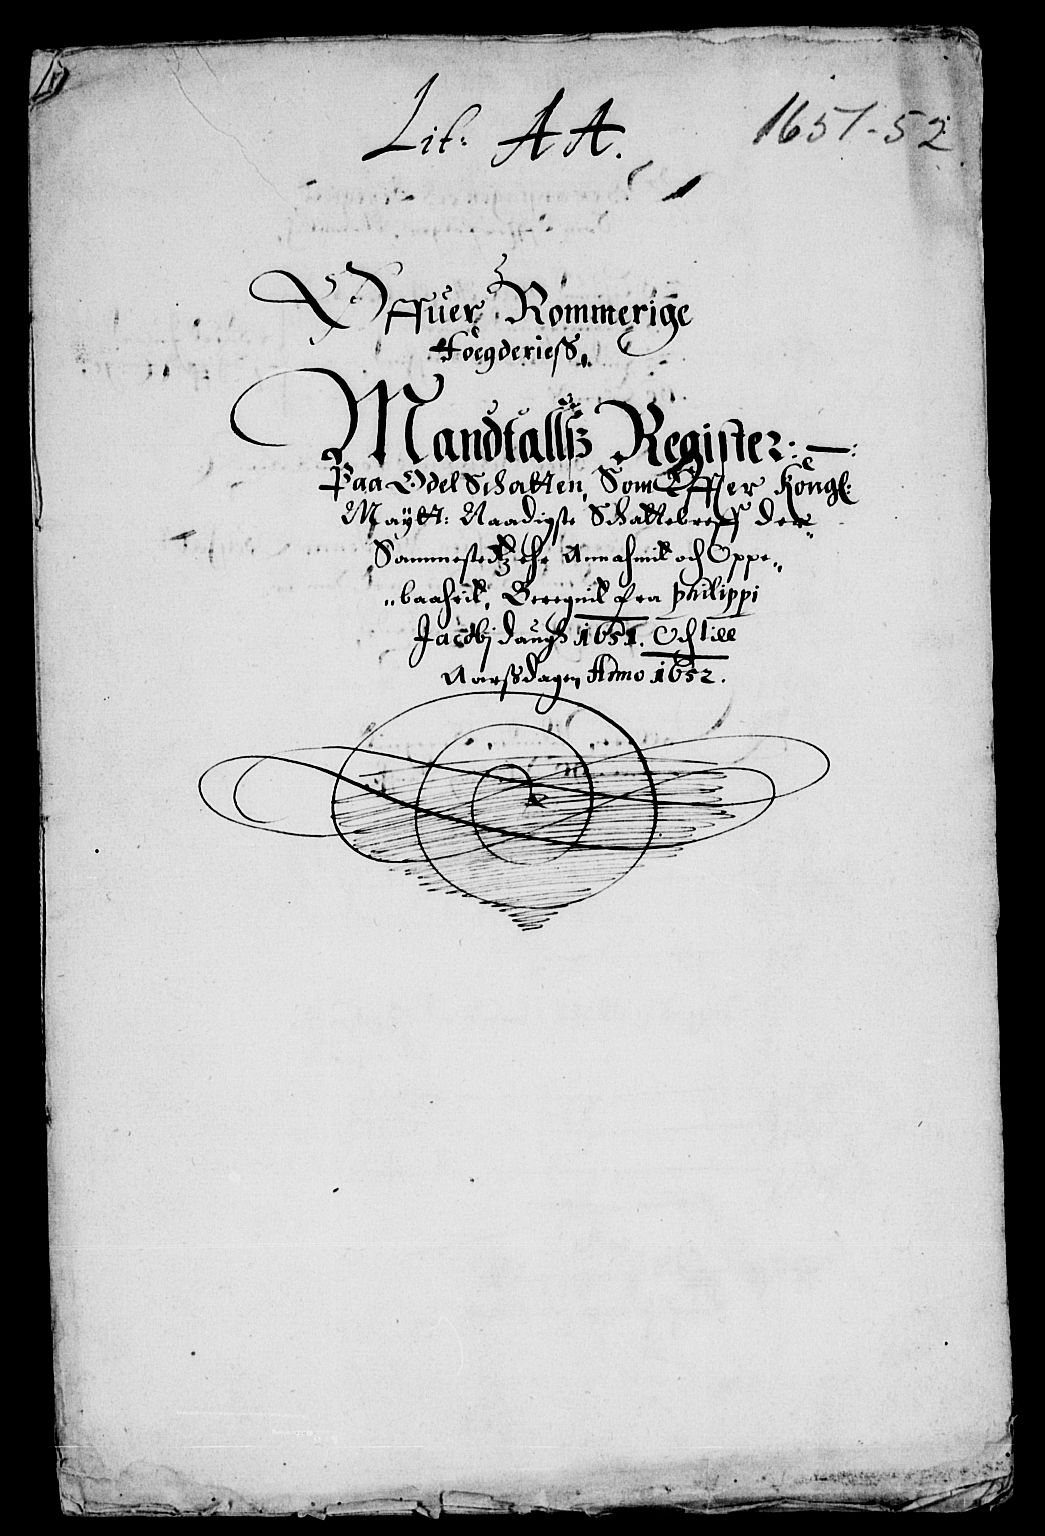 Lit: AA.
1651-52
Offuer Rommerige
Foegderiess,
Mandtallss Register:
Paa Odel Schatten, Som Effter Kongl:
Maÿtt: Naadigste Schattebreff der
Sammestedtz ehr Annahmit och Oppe„
„baahrit, Beregnit fra Philippi
Jacobj daugss 1651. Och till
Aarssdagen Anno 1652.